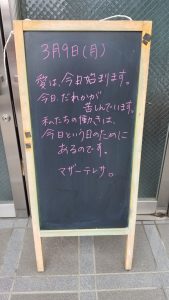 3月9日(月)
愛は、今日始まります。
今日、だれかが
苦しんでいます。
私たちの働きは、
今日という日のために
あるのです。
マザーテレサ。